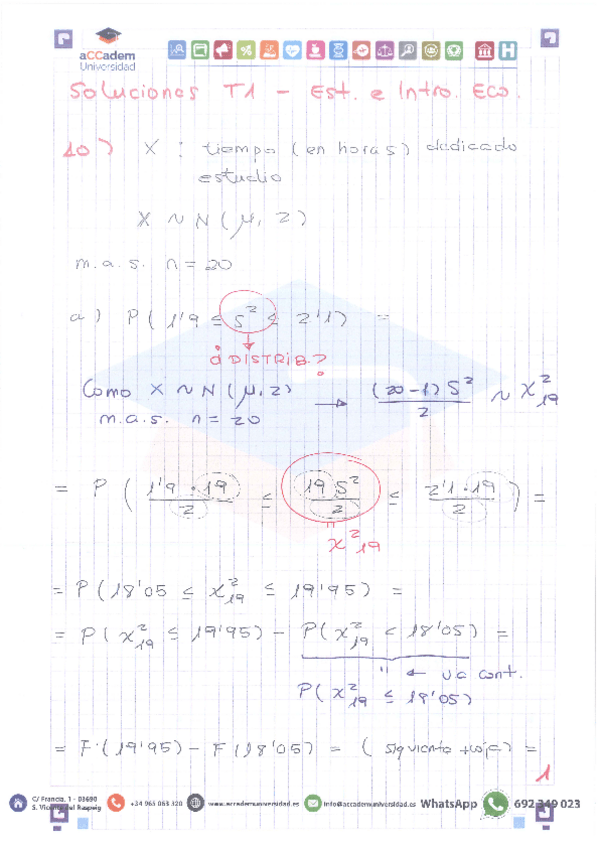 aCCadem
Universidad
Soluciones T1 - Est. e Intro. Eco.
10) X : tiempo (en horas) dedicado
estudio
X ~ N(μ, 2)
m.a.s. n = 20
a) P(1'9 ≤ S² ≤ 2'1) =
¿DISTRIB.?
Como X ~ N(μ, 2) → (20-1)S²/2 ~ χ²₁₉
m.a.s. n = 20
= P(1'9·19/2 ≤ 19S²/2 ≤ 2'1·19/2) =
χ²₁₉
= P(18'05 ≤ χ²₁₉ ≤ 19'95) =
= P(χ²₁₉ ≤ 19'95) - P(χ²₁₉ < 18'05) =
" ← va cont.
P(χ²₁₉ ≤ 18'05)
= F(19'95) - F(18'05) = (siguiente hoja) =
1
C/ Francia, 1 - 03690
S. Vicente del Raspeig
+34 965 063 320
www.accademuniversidad.es
info@accademuniversidad.es
WhatsApp
692 349 023